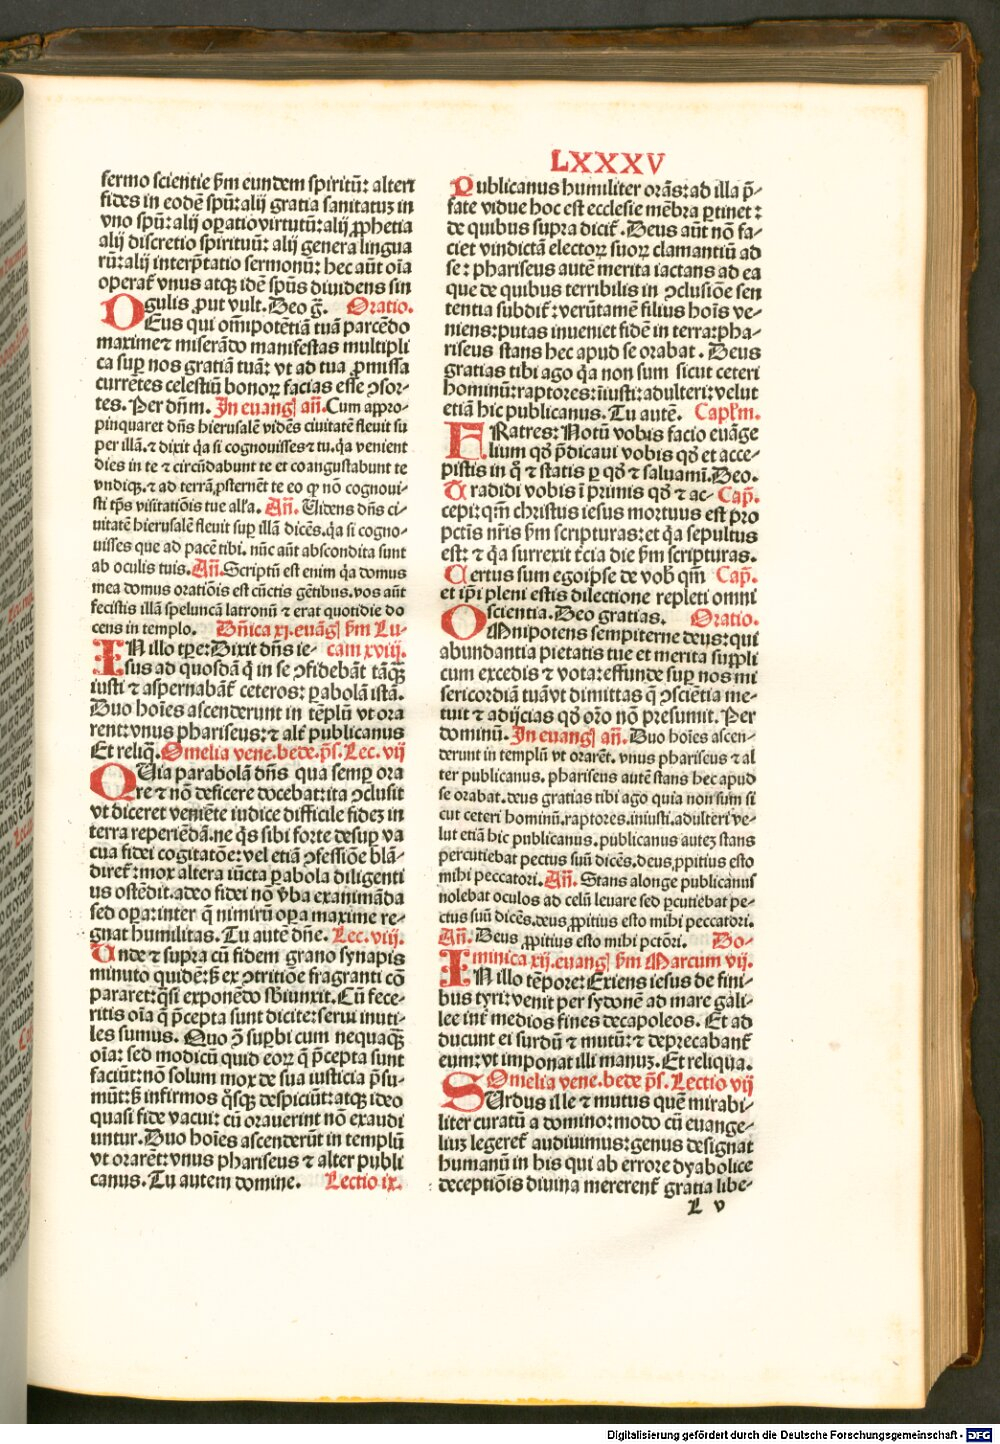 LXXXV
sermo scientie ẜm eundem spiritū: alteri
fides in eodē spū: alij gratia sanitatuʒ in
vno spū: alij oꝑatio virtutū: alij ꝓphetia
alij discretio spirituū: alij genera lingua
rū: alij interp̄tatio sermonū: hec aūt oīa
operat᷑ vnus atqꝫ idē sp̄us diuidens sin
gulis ꝓut vult. Deo ḡ. Oratio.
DEus qui om̄ipotētiā tuā parcēdo
maxime ⁊ miserādo manifestas multipli
ca suꝑ nos gratiā tuā: vt ad tua ꝓmissa
currētes celestiū bonoꝝ facias esse ꝯsor-
tes. Per dn̄m. In euangl̓ añ. Cum appro-
pinquaret dn̄s hierusalē vidēs ciuitatē fleuit su
per illā. ⁊ dixit q̇a si cognouisses ⁊ tu. q̇a venient
dies in te ⁊ circūdabunt te et coangustabunt te
vndiqꝫ. ⁊ ad terrā ꝓsternēt te eo ꝙ nō cognoui-
sti tp̄s visitatiōis tue all'a. Añ. Uidens dn̄s ci-
uitatē hierusalē fleuit suꝑ illā dicēs. q̇a si cogno-
uisses que ad pacē tibi. nūc aūt abscondita sunt
ab oculis tuis. Añ. Scriptū est enim q̇a domus
mea domus oratiōis est cūctis gētibus. vos aūt
fecistis illā speluncā latronū ⁊ erat quotidie do
cens in templo. Dn̄ica xj. euāgl̓ ẜm Lu-
IN illo tꝑe: Dixit dn̄s ie- cam xviij.
sus ad quosdā q̇ in se ꝯfidebāt tāqꝫ
iusti ⁊ aspernabāt᷑ ceteros: ꝑabolā istā.
Duo hoīes ascenderunt in tēplū vt ora
rent: vnus phariseus: ⁊ alt᷑ publicanus
Et reliq̄. Omelia vene. bede. p̄s. Lec. vij
QUia parabolā dn̄s qua semꝑ ora
re ⁊ nō deficere docebat: ita ꝯclusit
vt diceret veniēte iudice difficile fideʒ in
terra reperiēdā. ne q̇s sibi forte desuꝑ va
cua fidei cogitatōe: vel etiā ꝯfessiōe blā-
diret᷑: mox altera iūcta ꝑabola diligenti
us ostēdit. adeo fidei nō v̓ba exanimāda
sed oꝑa: inter q̄ nimirū oꝑa maxime re-
gnat humilitas. Tu autē dn̄e. Lec. viij.
Unde ⁊ supra cū fidem grano synapis
minuto quidē: ẜʒ ex ꝯtritiōe fragranti cō
pararet: q̄si exponēdo sb̄iunxit. Cū fece-
ritis oīa q̄ p̄cepta sunt dicite: serui inuti-
les sumus. Quo ꝯ suꝑbi cum nequaqꝫ
oīa: sed modicū quid eoꝝ q̄ p̄cepta sunt
faciūt: nō solum mox de sua iusticia p̄su-
mūt: ẜʒ infirmos q̄sqꝫ despiciūt: atqꝫ ideo
quasi fide vacui: cū orauerint nō exaudi
untur. Duo hoīes ascenderūt in templū
vt orarēt: vnus phariseus ⁊ alter publi
canus. Tu autem domine. Lectio ix.
Publicanus humiliter orās: ad illa p̄-
fate vidue hoc est ecclesie mēbra ꝑtinet:
de quibus supra dicit᷑. Deus aūt nō fa-
ciet vindictā electoꝝ suoꝝ clamantiū ad
se: phariseus autē merita iactans ad ea
que de quibus terribilis in ꝯclusiōe sen
tentia subdit᷑: verūtamē filius hoīs ve-
niens: putas inueniet fidē in terra: pha-
riseus stans hec apud se orabat. Deus
gratias tibi ago q̇a non sum sicut ceteri
hominū: raptores: īiusti: adulteri: velut
etiā hic publicanus. Tu autē. Capl̓m.
FRatres: Notū vobis facio euāge
lium qḋ p̄dicaui vobis qḋ et acce-
pistis in q̇ ⁊ statis ꝑ qḋ ⁊ saluamī. Deo.
Tradidi vobis ī primis qḋ ⁊ ac- Cap̄.
cepi: qm̄ christus iesus mortuus est pro
pctīs nr̄is ẜm scripturas: et q̇a sepultus
est: ⁊ q̇a surrexit t̄cia die ẜm scripturas.
Certus sum ego ipse de vob̓ qm̄ Cap̄.
et ip̄i pleni estis dilectione repleti omni
scientia. Deo gratias. Oratio.
OMnipotens sempiterne deus: qui
abundantia pietatis tue et merita suppli
cum excedis ⁊ vota: effunde suꝑ nos mi
sericordiā tuā vt dimittas q̄ ꝯscientia me-
tuit ⁊ adijcias qḋ or̄o nō presumit. Per
dominū. In euangl̓ añ. Duo hoīes ascen-
derunt in templū vt orarēt. vnus phariseus ⁊ al
ter publicanus. phariseus autē stans hec apud
se orabat. deus gratias tibi ago quia non sum si
cut ceteri hominū. raptores. iniusti. adulteri ve-
lut etiā hic publicanus. publicanus auteʒ stans
percutiebat pectus suū dicēs. deus ꝓpitius esto
mihi peccatori. Añ. Stans a longe publicanus
nolebat oculos ad celū leuare sed ꝑcutiebat pe-
ctus suū dicēs. deus ꝓpitius esto mihi peccatori.
Añ. Deus ꝓpitius esto mihi pctōri. Do-
minica xij. euangl̓ ẜm Marcum vij.
IN illo tēpore: Exiens iesus de fini-
bus tyri: venit per sydonē ad mare gali-
lee int᷑ medios fines decapoleos. Et ad
ducunt ei surdū ⁊ mutū: ⁊ deprecabant᷑
eum: vt imponat illi manuʒ. Et reliqua.
Omelia vene. bede p̄s. Lectio vij
SUrdus ille ⁊ mutus quē mirabi-
liter curatū a domino: modo cū euange-
liuʒ legeret᷑ audiuimus: genus designat
humanū in his qui ab errore dyabolice
deceptiōis diuina mererent᷑ gratia libe-
L v
Digitalisierung gefördert durch die Deutsche Forschungsgemeinschaft - DFG